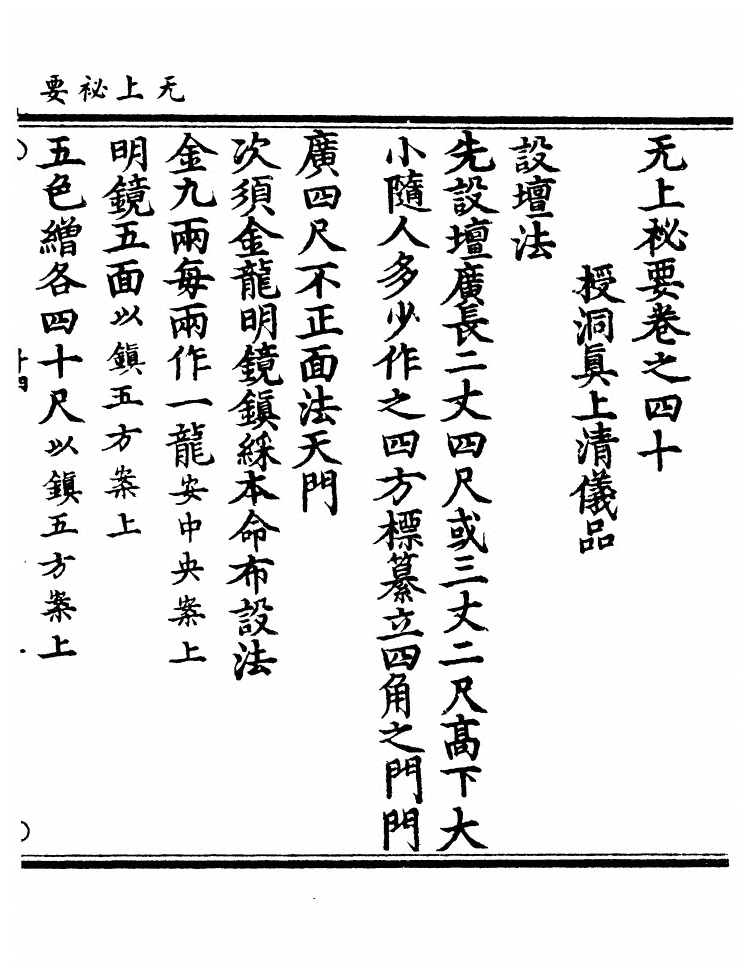 无上祕要
无上祕要卷之四十
授洞真上清儀品
設壇法
先設壇廣長二丈四尺或三丈二尺高下大
小隨人多少作之四方標纂立四角之門門
廣四尺不正面法天門
次須金龍明鏡鎮綵本命布設法
金九兩每兩作一龍安中央案上
明鏡五面以鎮五方案上
五色繒各四十尺以鎮五方案上
十四